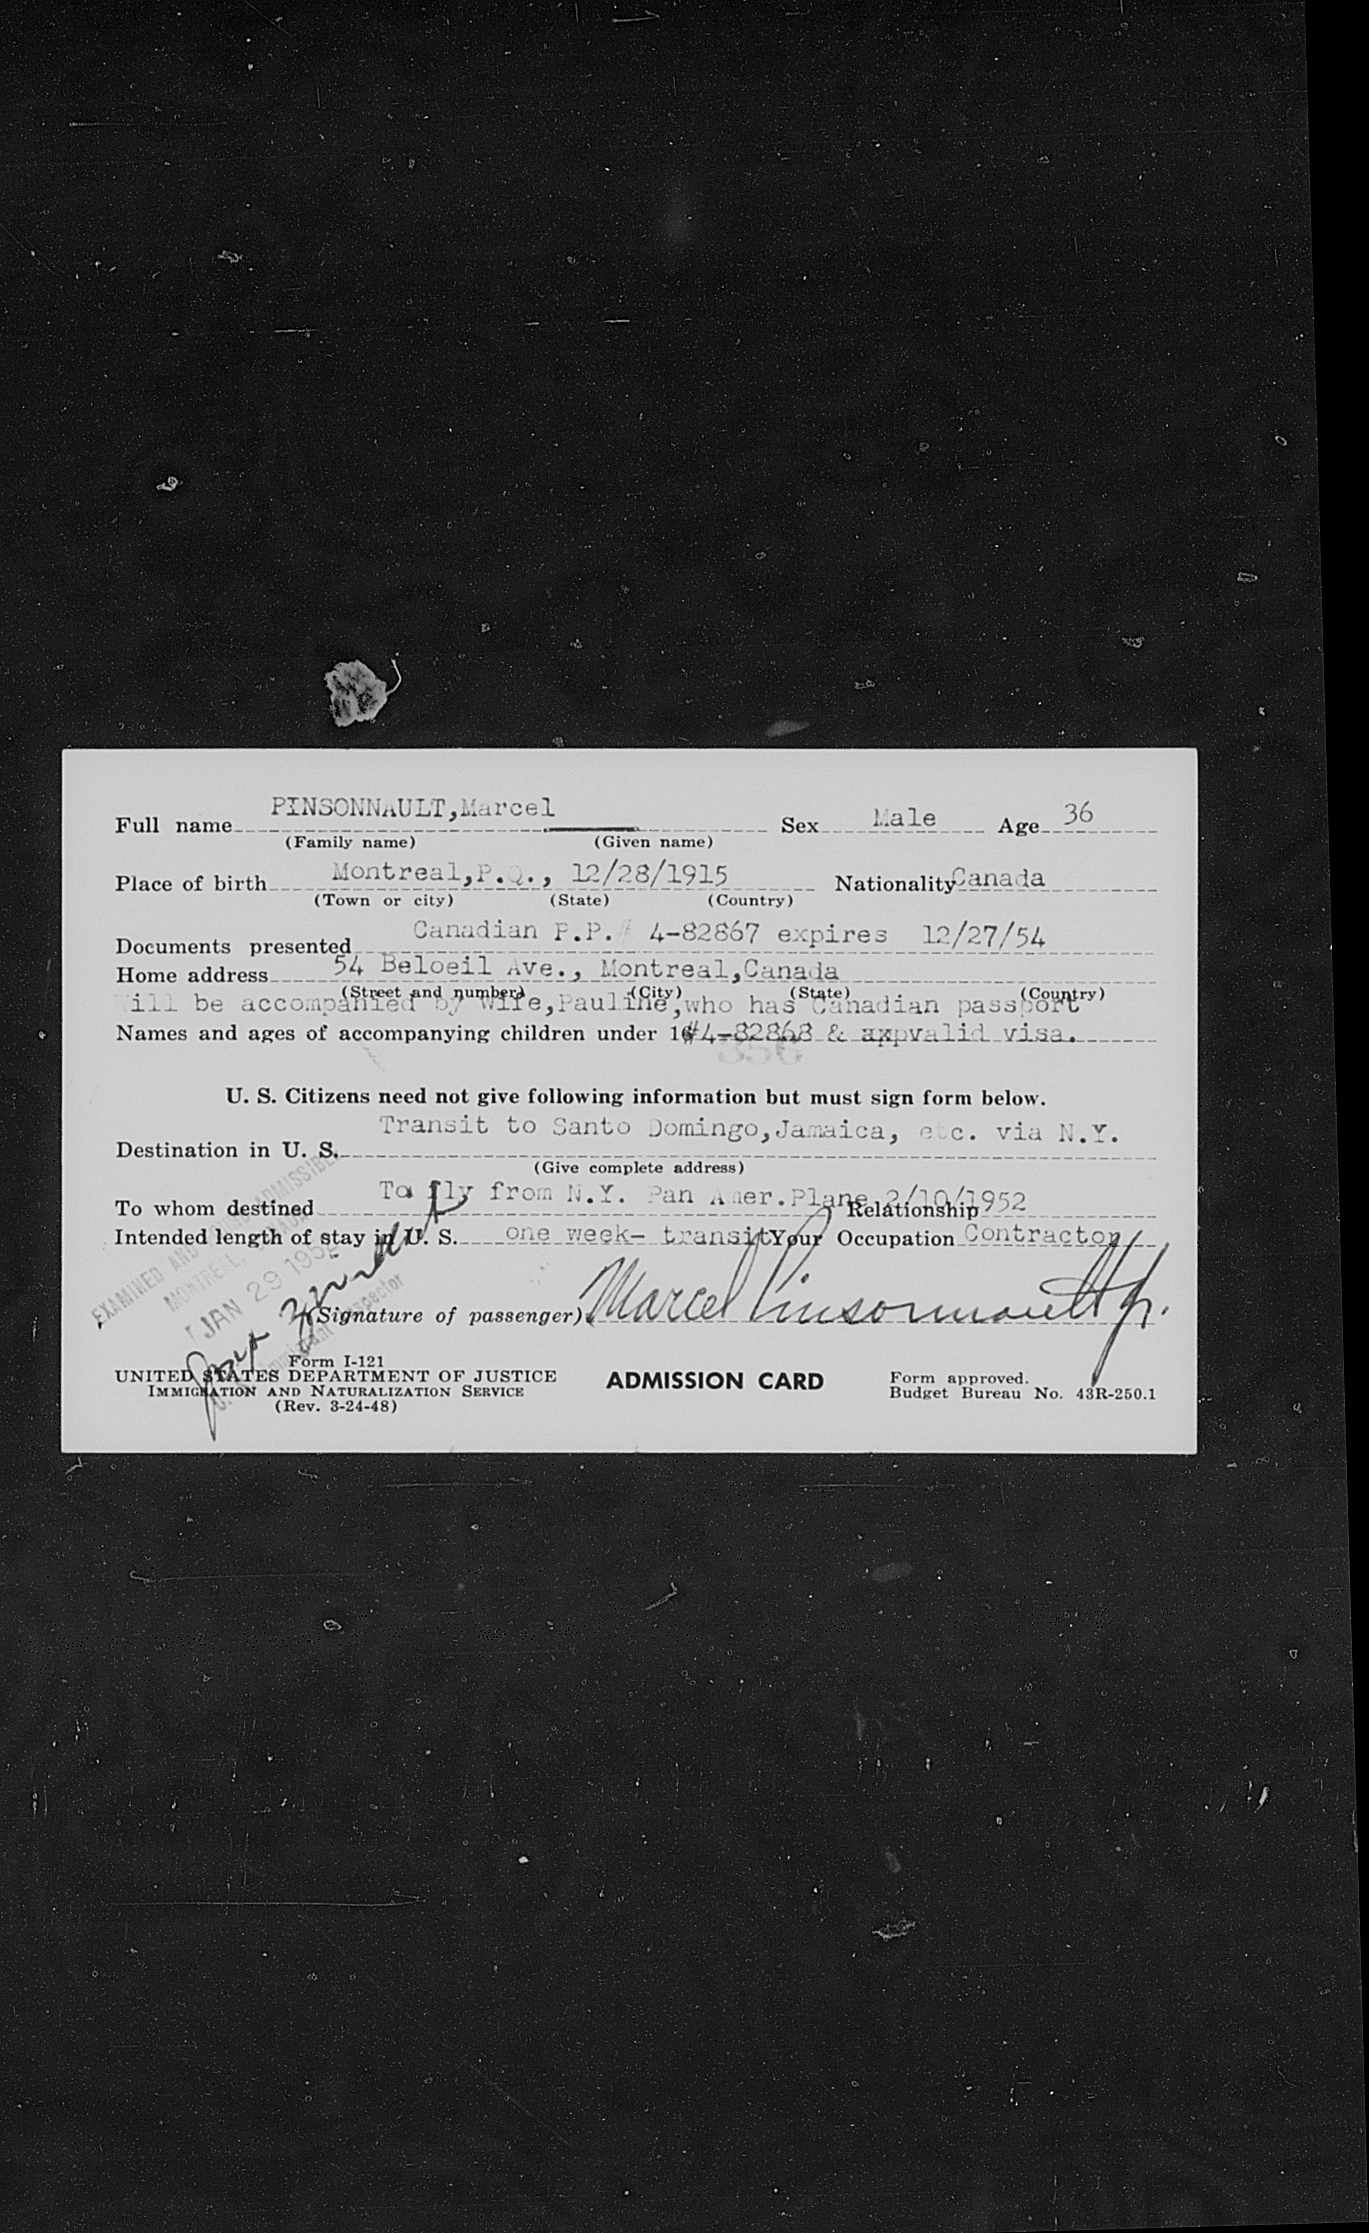 Full name PINSONNAULT,Marcel Sex Male Age 36
(Family name) (Given name)
Place of birth Montreal,P.Q., 12/28/1915 Nationality Canada
(Town or city) (State) (Country)
Documents presented Canadian P.P.# 4-82867 expires 12/27/54
Home address 54 Beloeil Ave., Montreal,Canada
(Street and number) (City) (State) (Country)
Will be accompanied by wife,Pauline,who has Canadian passport
Names and ages of accompanying children under 16 #4-82868 & valid visa.
U. S. Citizens need not give following information but must sign form below.
Destination in U. S. Transit to Santo Domingo,Jamaica, etc. via N.Y.
(Give complete address)
To whom destined To fly from N.Y. Pan Amer.Plane 2/10/1952 Relationship
Intended length of stay in U. S. one week- transit Your Occupation Contractor
EXAMINED AND ADMISSIBLE
MONTREAL, CANADA
JAN 29 1952
Immigrant Inspector
(Signature of passenger) Marcel Pinsonnault Jr.
Form I-121
UNITED STATES DEPARTMENT OF JUSTICE
IMMIGRATION AND NATURALIZATION SERVICE
(Rev. 3-24-48)
ADMISSION CARD
Form approved.
Budget Bureau No. 43R-250.1